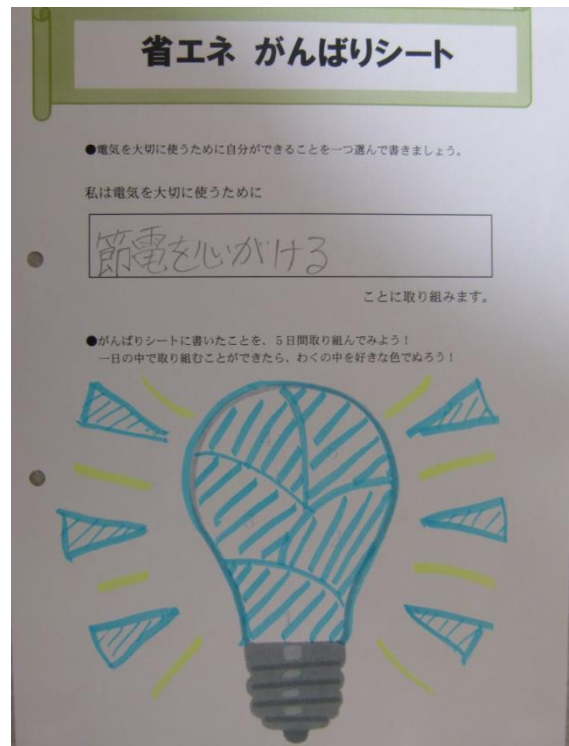 省エネ がんばりシート
●電気を大切に使うために自分ができることを一つ選んで書きましょう。
私は電気を大切に使うために
節電を心がける
ことに取り組みます。
●がんばりシートに書いたことを、５日間取り組んでみよう！
一日の中で取り組むことができたら、わくの中を好きな色でぬろう！